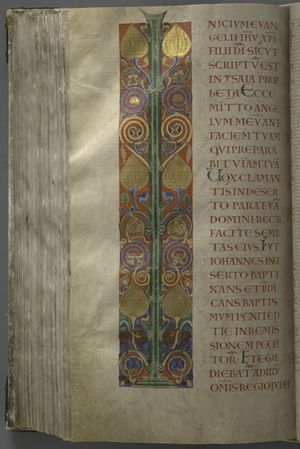 NICIVM EVAN
GELII IHV XPI
FILII DI SICVT
SCRIPTV EST
IN YSAIA PROP
HETA ECCE
MITTO ANGE
LVM MEVM ANT
FACIEM TVAM
QVI PREPARA
BIT VIAM TVA
VOX CLAMAN
TIS IN DESER
TO PARATE VIA
DOMINI RECT
FACITE SEMI
TAS EIVS FVIT
IOHANNES IN DE
SERTO BAPTI
ZANS ET PDI
CANS BAPTIS
MVM PENITEN
TIE IN REMIS
SIONEM PECCA
TOR ET EGRE
DIEBAT AD ILLV
OMIS REGIO IVDEE